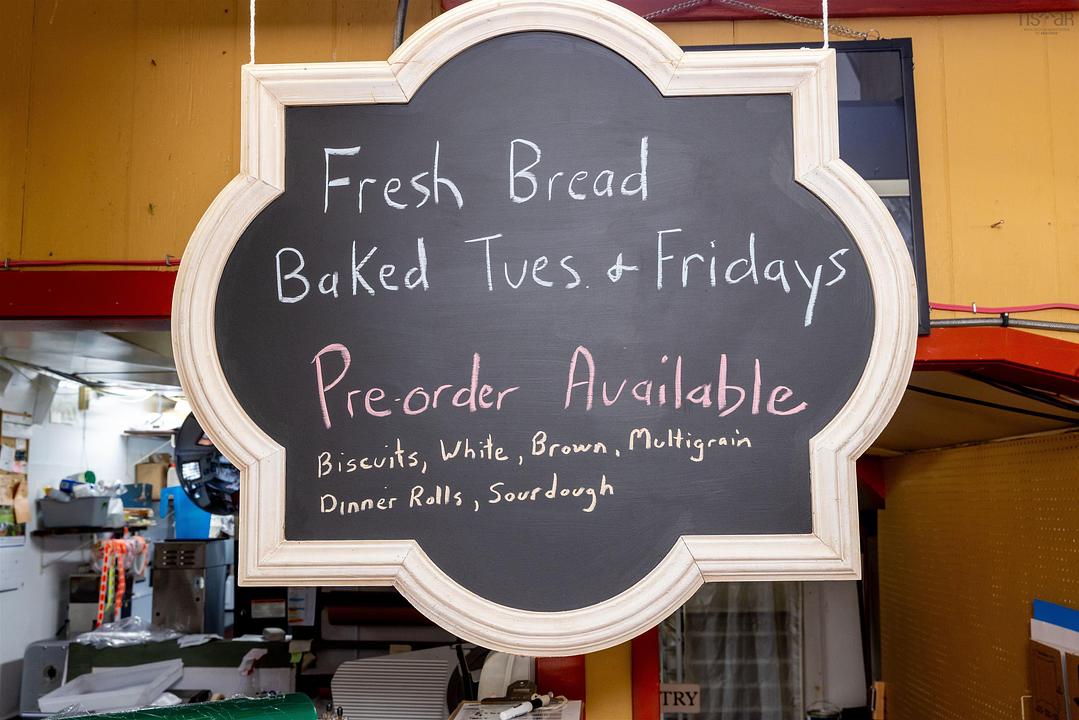 Fresh Bread
Baked Tues. & Fridays
Pre-order Available
Biscuits, White, Brown, Multigrain
Dinner Rolls, Sourdough
TRY